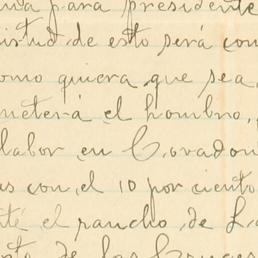 para presidente
istud de esto será con
omo quiera que sea
meterá el hombro,
labor en Covadon
as con el 10 por ciento
té el rancho de L